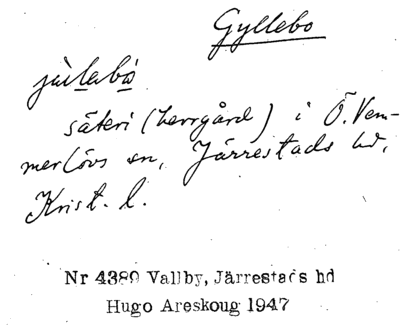 Gyllebo
jùlabò
säteri (herrgård) i Ö. Vem-
merlövs sn, Järrestads hd,
Krist. l.
Nr 4389 Vallby, Järrestads hd
Hugo Areskoug 1947